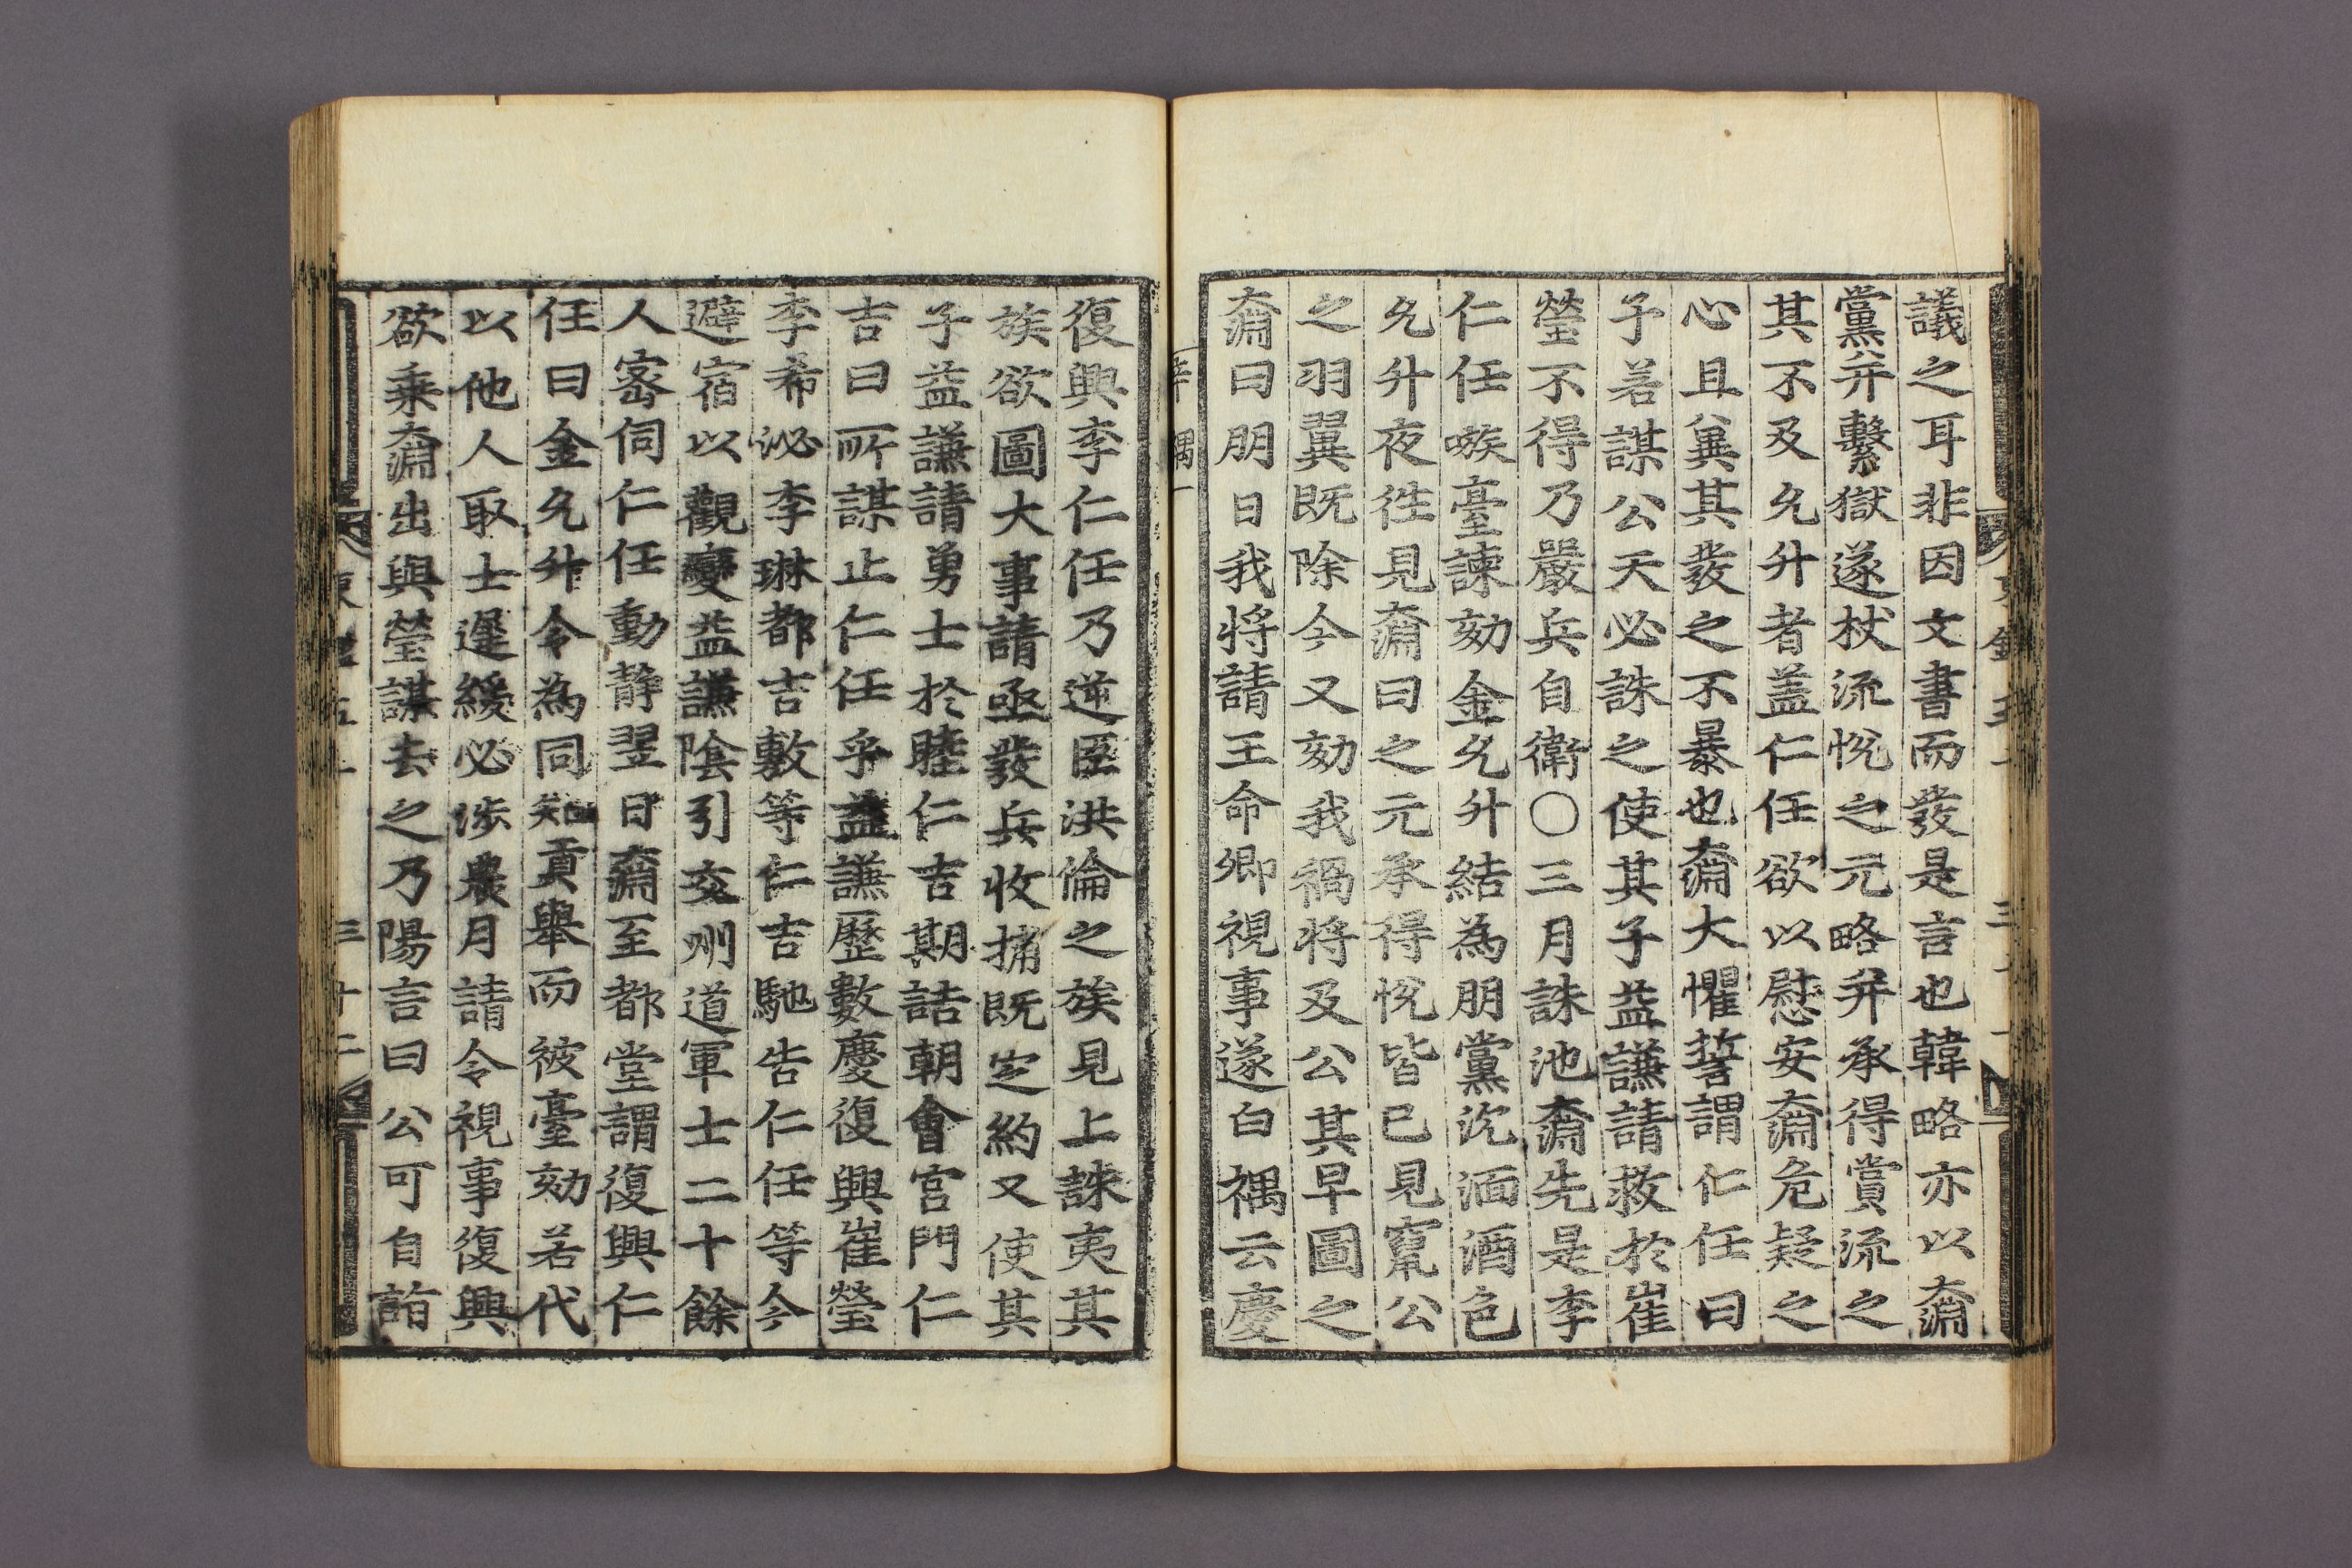 議之耳非因文書而發是言也韓略亦以奫
黨并繫獄遂杖流悅之元略并承得賞流之
其不及允升者盖仁任欲以慰安奫危疑之
心且冀其發之不暴也奫大懼誓謂仁任曰
予若謀公天必誅之使其子益謙請救於崔
瑩不得乃嚴兵自衛〇三月誅池奫先是李
仁任嗾臺諫劾金允升結為朋黨沉湎酒色
允升夜徃見奫曰之元承得悅皆已見竄公
之羽翼既除今又劾我禍将及公其早圖之
奫曰明日我将請王命卿視事遂白禑云慶
辛禑一
復興李仁任乃逆臣洪倫之族見上誅夷其
族欲圖大事請亟發兵收捕既定約又使其
子益謙請勇士於睦仁吉期詰朝會宮門仁
吉曰所謀止仁任乎益謙歷數慶復興崔瑩
李希泌李琳都吉敷等仁吉馳告仁任等今
避宿以觀變益謙陰引交州道軍士二十餘
人宻伺仁任動静翌日奫至都堂謂復興仁
任曰金允升令為同知貢舉而被臺劾若代
以他人取士遲緩必涉農月請令視事復興
欲乗奫出與瑩謀去之乃陽言曰公可自詣